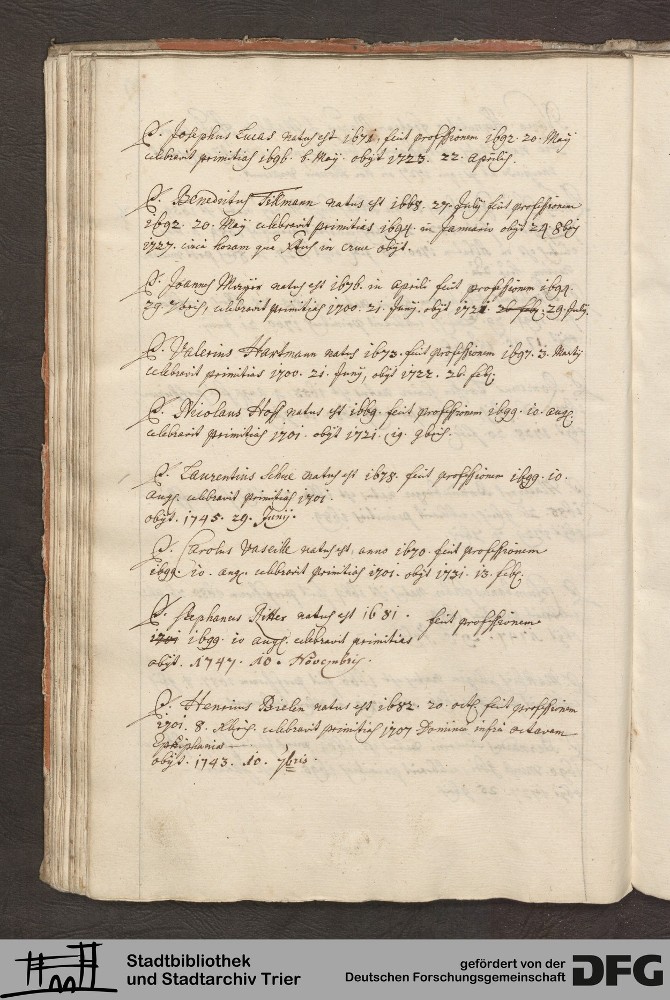 P. Josephus Lucas natus est 1671. fecit professionem 1692. 20. Maÿ
celebravit primitias 1696. 6. Maÿ. obÿt 1723. 22. Aprilis.
P. Benedictus Tilmann natus est 1668. 27. Julÿ fecit professionem
1692. 20. Maÿ celebravit primitias 1694. in Januario obÿt 24 8bris
1727. circa horam qua Xtus in cruce obÿt.
P. Joannes Meÿer natus est 1676. in Aprili fecit professionem 1694.
29. 7bris, celebravit primitias 1700. 21. Junÿ. obÿt 26 feb. 29. Julÿ.
P. Valerius Hartmann natus 1673. fecit professionem 1697. 3. Martÿ
celebravit primitias 1700. 21. Junÿ, obÿt 1722. 26. feb.
P. Nicolaus Hoff natus est 1669. fecit professionem 1699. 10. aug.
celebravit primitias 1701. obÿt 1721. 19. 9bris.
P. Laurentius natus est 1678. fecit professionem 1699. 10.
Aug. celebravit primitias 1701.
obÿt. 1745. 29. Junÿ.
P. Carolus Vaseille natus est, anno 1670. fecit professionem
1699. 10. aug. celebravit primitias 1701. obÿt 1731. 13. feb.
P. Stephanus Ritter natus est 1681. fecit professionem
1701 1699. 10 aug. celebravit primitias
obÿt. 1747. 10. Novembris.
P. Henricus Bielen natus est 1682. 20. octb. fecit professionem
1701. 8. Xbris. celebravit primitias 1707 Dominica infra octavam
Epiphaniae
obÿt. 1743. 10. 7bris.
Stadtbibliothek
und Stadtarchiv Trier
gefördert von der
Deutschen Forschungsgemeinschaft
DFG